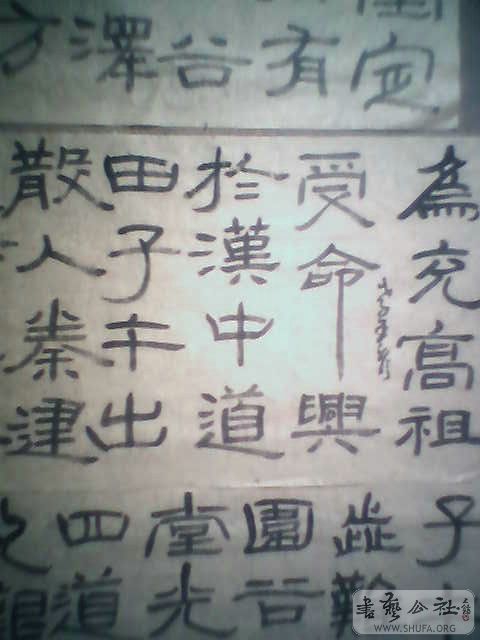 定
有
谷
澤
方
為充高祖
受命興
於漢中道
田子午出
散人秦建
子
難
園谷
堂光
四道
書藝公社
WWW.SHUFA.ORG